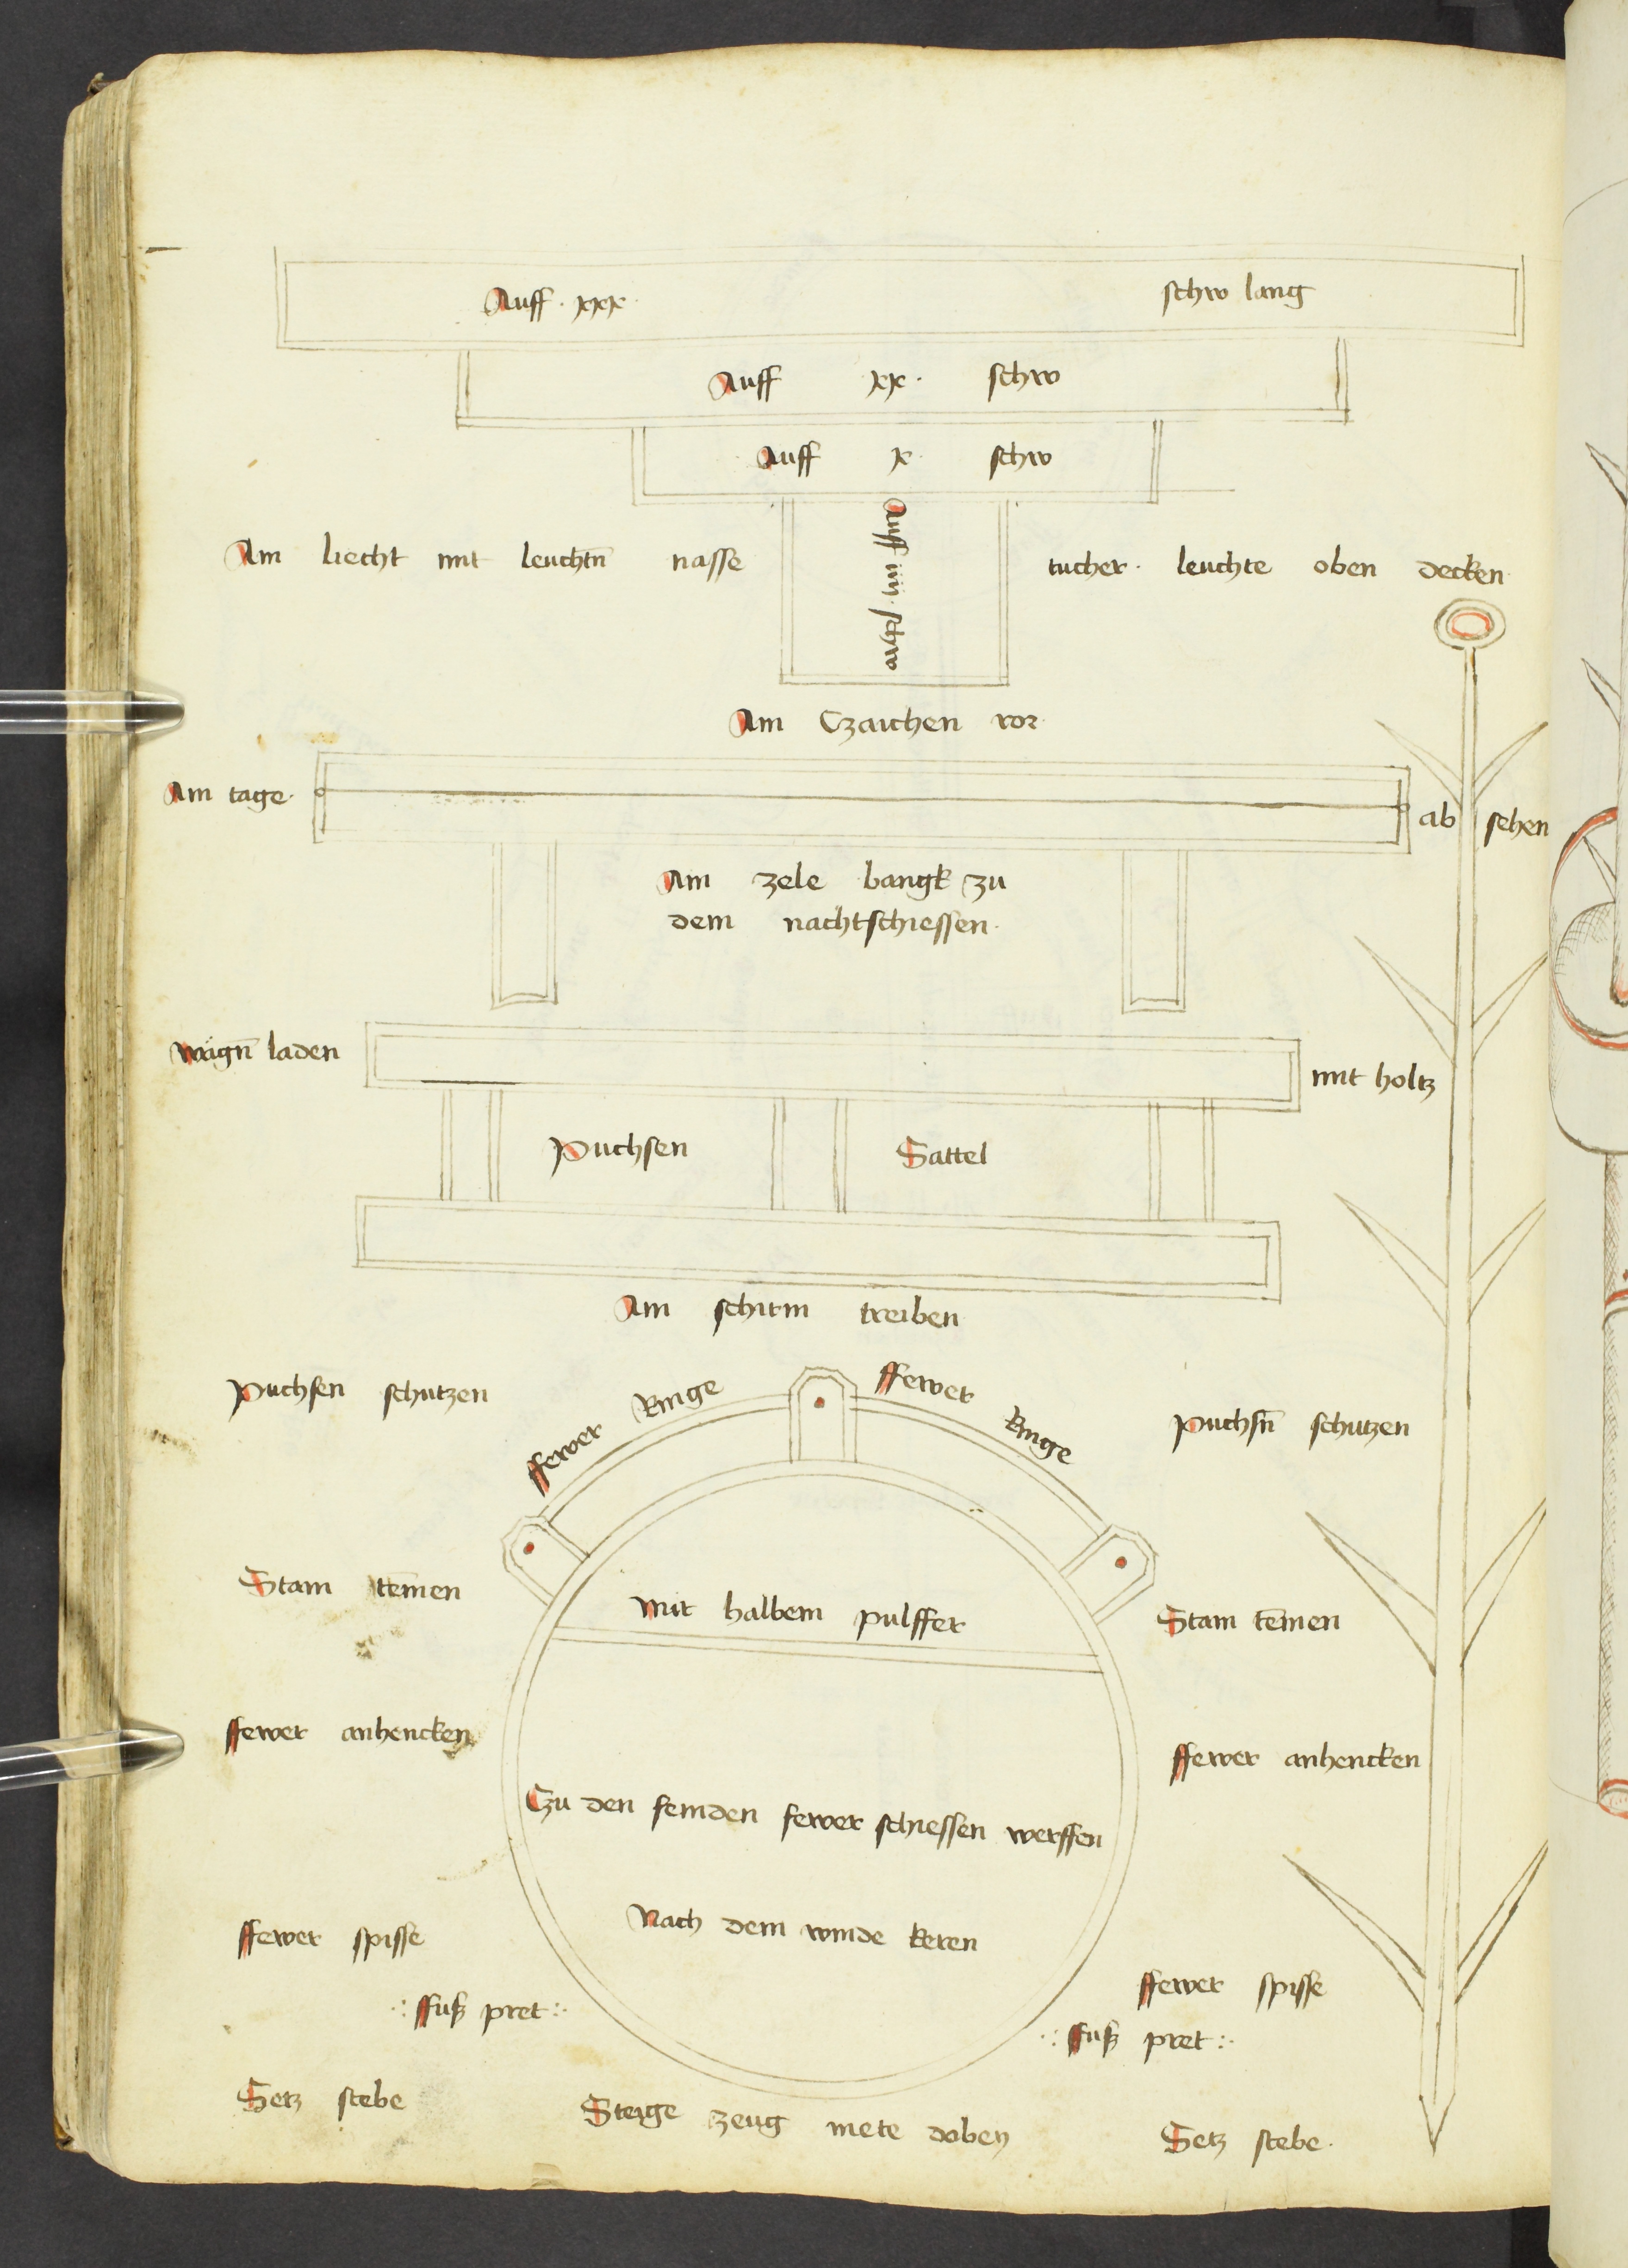 Auff · xxx · schw lang
Auff xx · schw
Auff x · schw
Auff iiii schw
Am liecht mit leuchtn̄ nasse tucher · leuchte oben decken
Am Czaichen vor
Am tage · ab sehen
Am zele bangk zu
dem nachtschiessen ·
wägn̄ laden mit holtz
Puchsen Sattel
Am schirm treiben
Puchsen schutzen ffewer Ringe ffewer Ringe Puchsn̄ schutzen
Stam tēmen Mit halbem pulffer Stam tēmen
ffewer anhencken ffewer anhencken
Czu den feinden fewer schiessen werffen
Nach dem winde keren
ffewer spisse ffewer spisse
·: ffuß pret :· ·: ffuß pret :·
Setz stebe Steige zeug mete doben Setz stebe ·